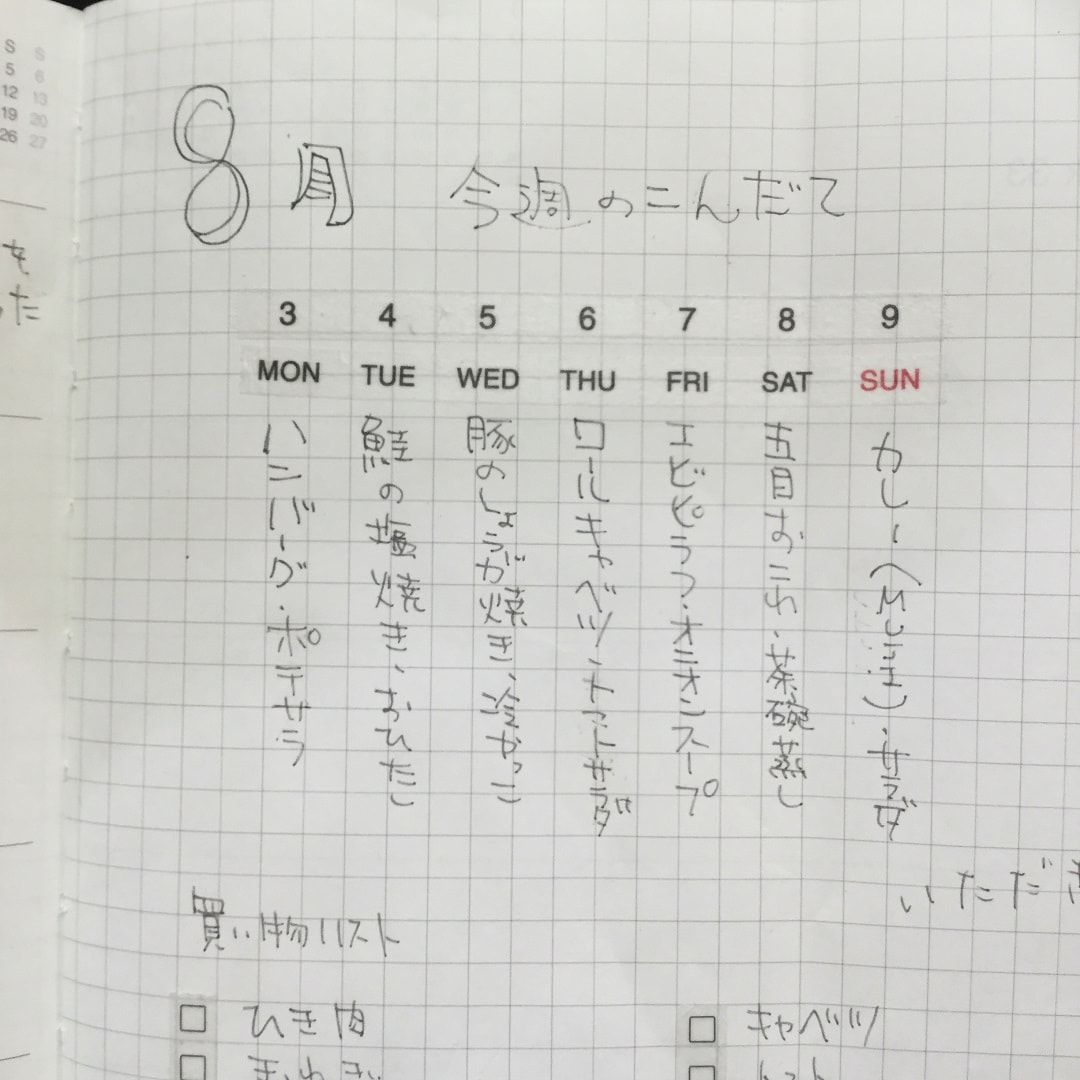 S S
5 6
12 13
19 20
26 27
8月 今週のこんだて
3 4 5 6 7 8 9
MON TUE WED THU FRI SAT SUN
ハンバーグ・ポテサラ
鮭の塩焼き、おひたし
豚のしょうが焼き、冷やっこ
ロールキャベツ、
エビピラフ・オニオンスープ
五目おこわ・茶碗蒸し
カレー・サラダ
いただき
買い物リスト
□ ひき肉
□ キャベツ